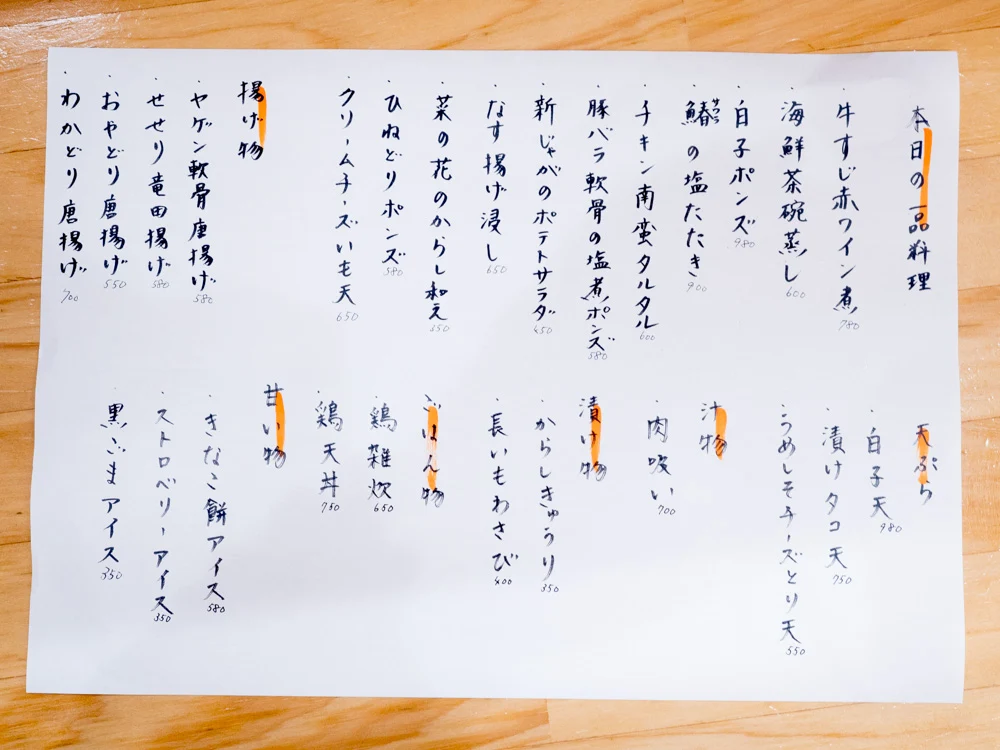 本日の一品料理
・牛すじ赤ワイン煮 780
・海鮮茶碗蒸し 600
・白子ポンズ 980
・鰆の塩たたき 900
・チキン南蛮タルタル 600
・豚バラ軟骨の塩煮ポンズ 580
・新じゃがのポテトサラダ 450
・なす揚げ浸し 650
・菜の花のからし和え 350
・ひねどりポンズ 580
・クリームチーズいも天 650
揚げ物
・ヤゲン軟骨唐揚げ 580
・せせり竜田揚げ 580
・おやどり唐揚げ 550
・わかどり唐揚げ 700
天ぷら
・白子天 980
・漬けタコ天 750
・うめしそチーズとり天 550
汁物
・肉吸い 700
漬け物
・からしきゅうり 350
・長いもわさび 400
ごはん物
・鶏雑炊 650
・鶏天丼 750
甘い物
・きなこ餅アイス 580
・ストロベリーアイス 350
・黒ごまアイス 350